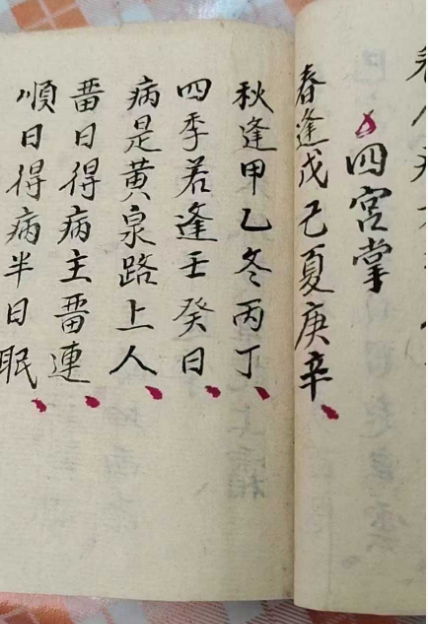 四宮掌
春逢戊己夏庚辛
秋逢甲乙冬丙丁
四季若逢壬癸日
病是黄泉路上人
畨日得病主畨連
順日得病半日眠